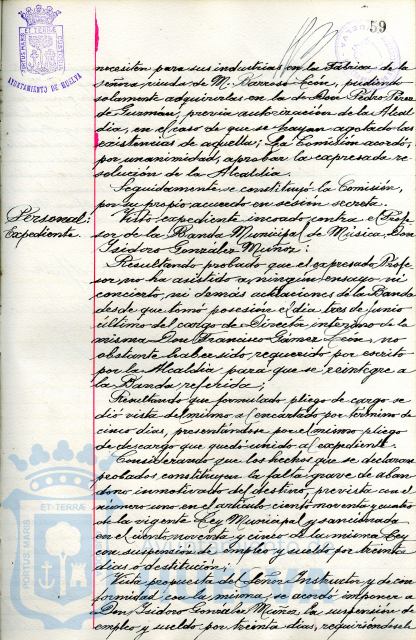 59
AYUNTAMIENTO DE HUELVA
PORTUS MARIS ET TERRÆ CUSTODIA
necesiten para sus industrias en la Fábrica de la
señora viuda de M. Barroso León, pudiendo
solamente adquirirlas en la de Don Pedro Pérez
de Guzmán, previa autorización de la Alcal
día, en el caso de que se hayan agotado las
existencias de aquella; La Comisión acordó,
por unanimidad, aprobar la expresada re
solución de la Alcaldía.
Seguidamente se constituyó la Comisión,
por su propio acuerdo en sesión secreta.
Personal:
Expediente.
Visto expediente incoado contra el Profe
sor de la Banda Municipal de Música, Don
Isidoro González Muñoz:
Resultando probado que el expresado Profe
sor, no ha asistido a ningún ensayo ni
concierto, ni demás actuaciones de la Banda
desde que tomó posesión el día tres de Junio
último del cargo de Director interino de la
misma Don Francisco Gámez León, no
obstante haber sido requerido por escrito
por la Alcaldía para que se reintegre a
la Banda referida;
Resultando que formulado pliego de cargo se
dió vista del mismo al encartado por término de
cinco días, presentándose por el mismo pliego
de descargo que quedó unido al expediente.
Considerando que los hechos que se declaran
probados constituyen la falta grave de aban
dono inmotivado del destino, prevista con el
número uno en el artículo ciento noventa y cuatro
de la vigente Ley Municipal y sancionada
en el ciento noventa y cinco de la misma Ley
con suspensión de empleo y sueldo por treinta
días o destitución;
Vista propuesta del Señor Instructor y de con
formidad con la misma, se acordó imponer a
Don Isidoro González Muñoz la suspensión de
empleo y sueldo por treinta días, requiriéndosele
PORTUS MARIS
ET TERRÆ